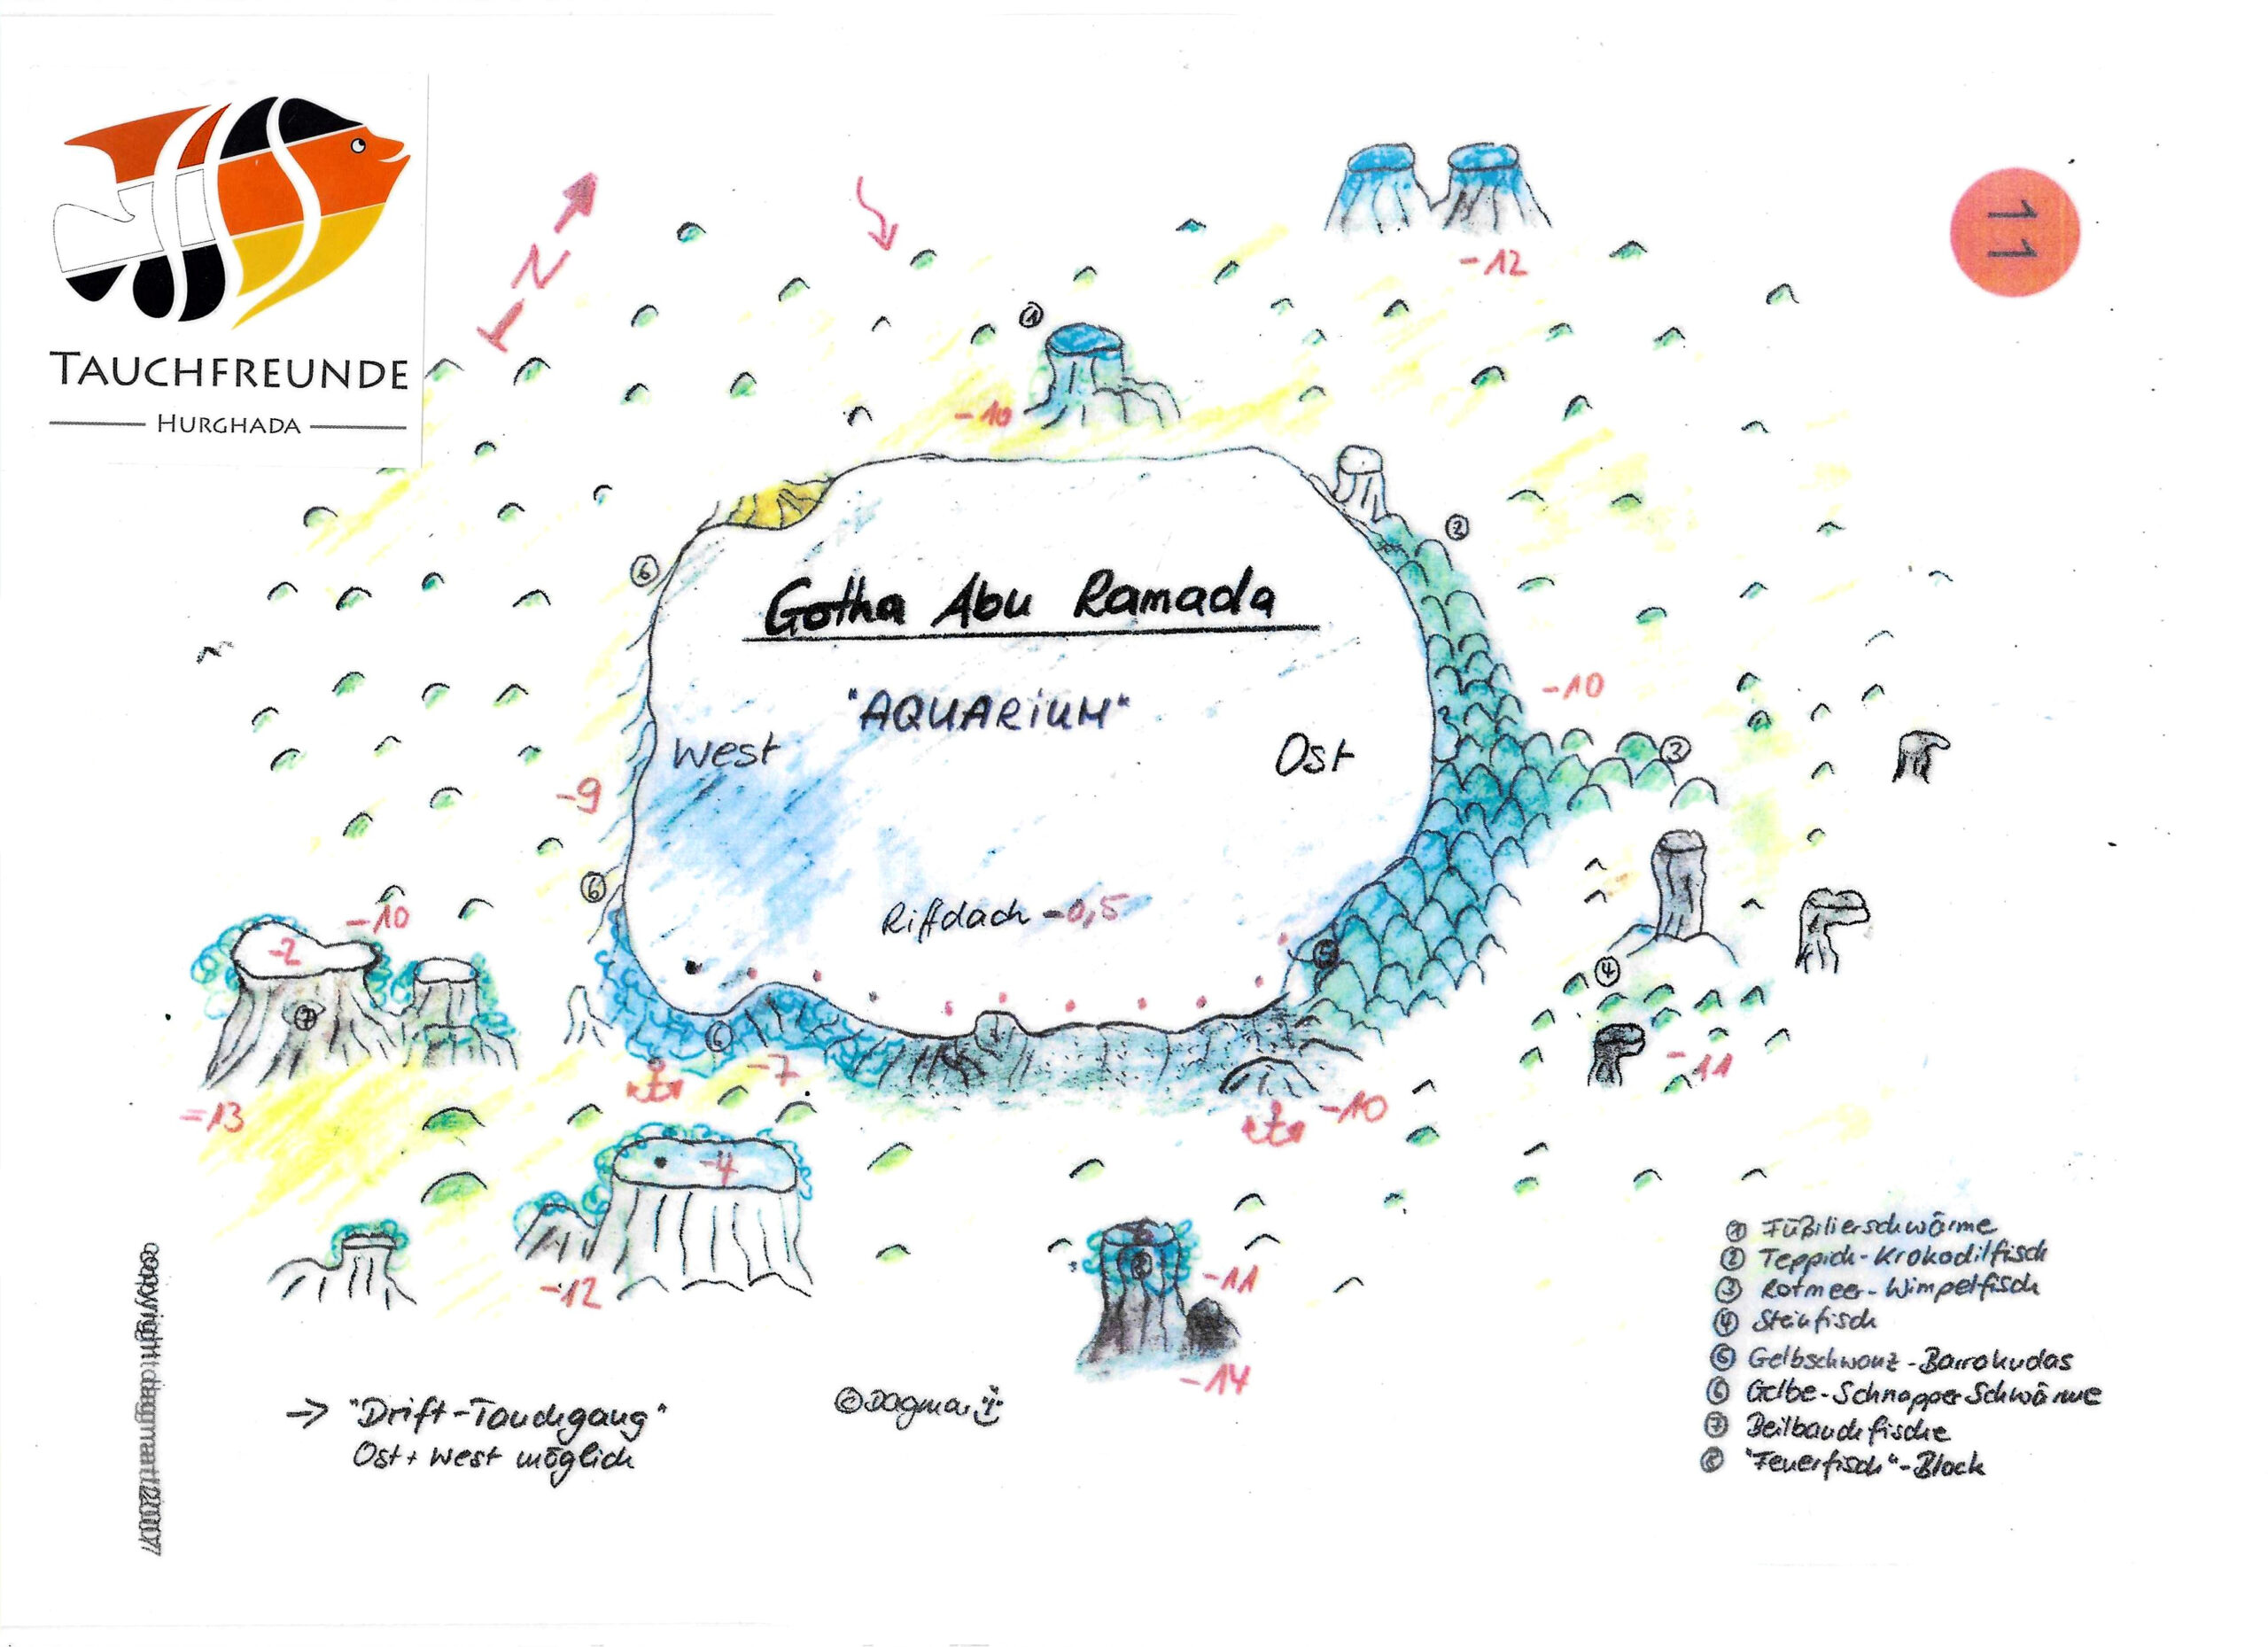 TAUCHFREUNDE
HURGHADA
N
11
-12
①
-10
②
⑥
Gotha Abu Ramada
"AQUARIUM"
West
Ost
-10
③
-9
⑥
Riffdach -0,5
-10
-2
⑤
④
⑦
⑥
-7
-11
=13
-10
-4
-12
-11
-14
① Füßilierschwärme
② Teppich-Krokodilfisch
③ Rotmeer-Wimpelfisch
④ Steinfisch
⑤ Gelbschwanz-Barrakudas
⑥ Gelbe-Schnapper Schwärme
⑦ Beilbauchfische
⑧ "Feuerfisch"-Block
→ "Drift-Tauchgang"
Ost + West möglich
©Dagmar